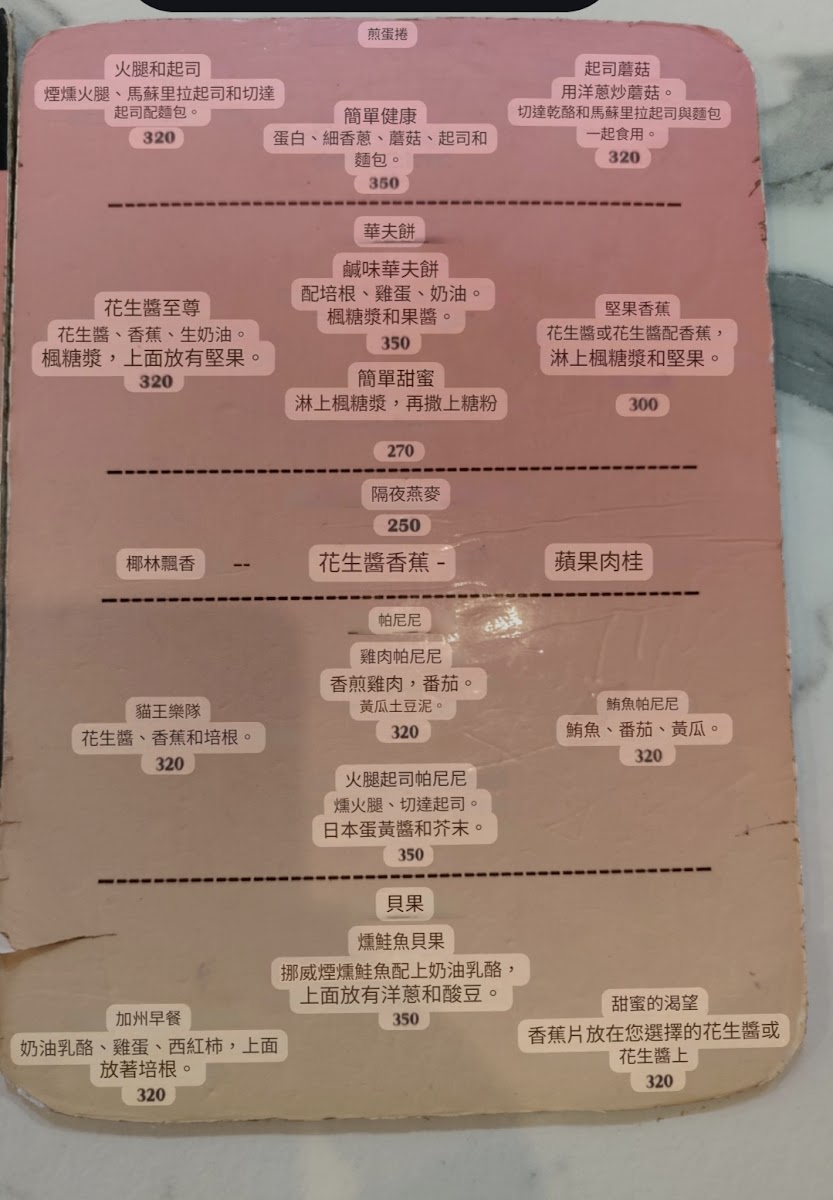 煎蛋捲
火腿和起司
煙燻火腿、馬蘇里拉起司和切達
起司配麵包。
320
簡單健康
蛋白、細香蔥、蘑菇、起司和
麵包。
350
起司蘑菇
用洋蔥炒蘑菇。
切達乾酪和馬蘇里拉起司與麵包
一起食用。
320
華夫餅
花生醬至尊
花生醬、香蕉、生奶油。
楓糖漿，上面放有堅果。
320
鹹味華夫餅
配培根、雞蛋、奶油。
楓糖漿和果醬。
350
簡單甜蜜
淋上楓糖漿，再撒上糖粉
270
堅果香蕉
花生醬或花生醬配香蕉，
淋上楓糖漿和堅果。
300
隔夜燕麥
250
椰林飄香 -- 花生醬香蕉 - 蘋果肉桂
帕尼尼
貓王樂隊
花生醬、香蕉和培根。
320
雞肉帕尼尼
香煎雞肉，番茄。
黃瓜土豆泥。
320
火腿起司帕尼尼
燻火腿、切達起司。
日本蛋黃醬和芥末。
350
鮪魚帕尼尼
鮪魚、番茄、黃瓜。
320
貝果
加州早餐
奶油乳酪、雞蛋、西紅柿，上面
放著培根。
320
燻鮭魚貝果
挪威煙燻鮭魚配上奶油乳酪，
上面放有洋蔥和酸豆。
350
甜蜜的渴望
香蕉片放在您選擇的花生醬或
花生醬上
320